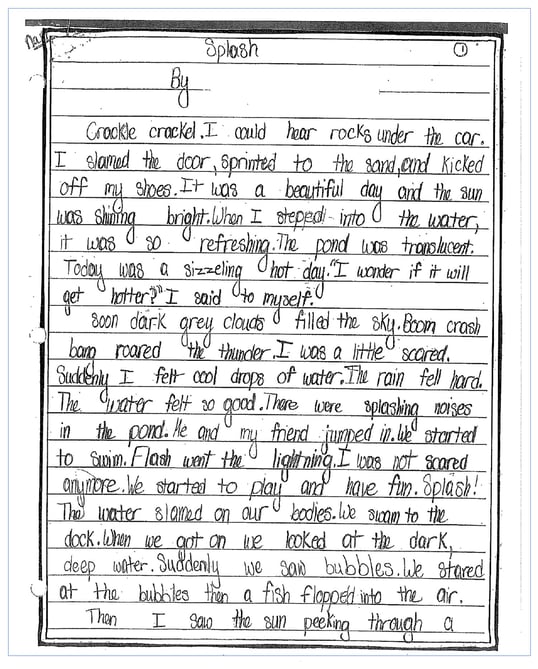 Splash
1
By
Crackle crackel. I could hear rocks under the car.
I slamed the door, sprinted to the sand, and kicked
off my shoes. It was a beautiful day and the sun
was shining bright. When I stepped into the water,
it was so refreshing. The pond was translucent.
Today was a sizzeling hot day. "I wonder if it will
get hotter?" I said to myself.
soon dark grey clouds filled the sky. Boom crash
bang roared the thunder. I was a little scared.
Suddenly I felt cool drops of water. The rain fell hard.
The water felt so good. There were splashing noises
in the pond. Me and my friend jumped in. We started
to swim. Flash went the lightning. I was not scared
anymore. We started to play and have fun. Splash!
The water slamed on our bodies. We swam to the
dock. When we got on we looked at the dark,
deep water. Suddenly we saw bubbles. We stared
at the bubbles then a fish flopped into the air.
Then I saw the sun peeking through a